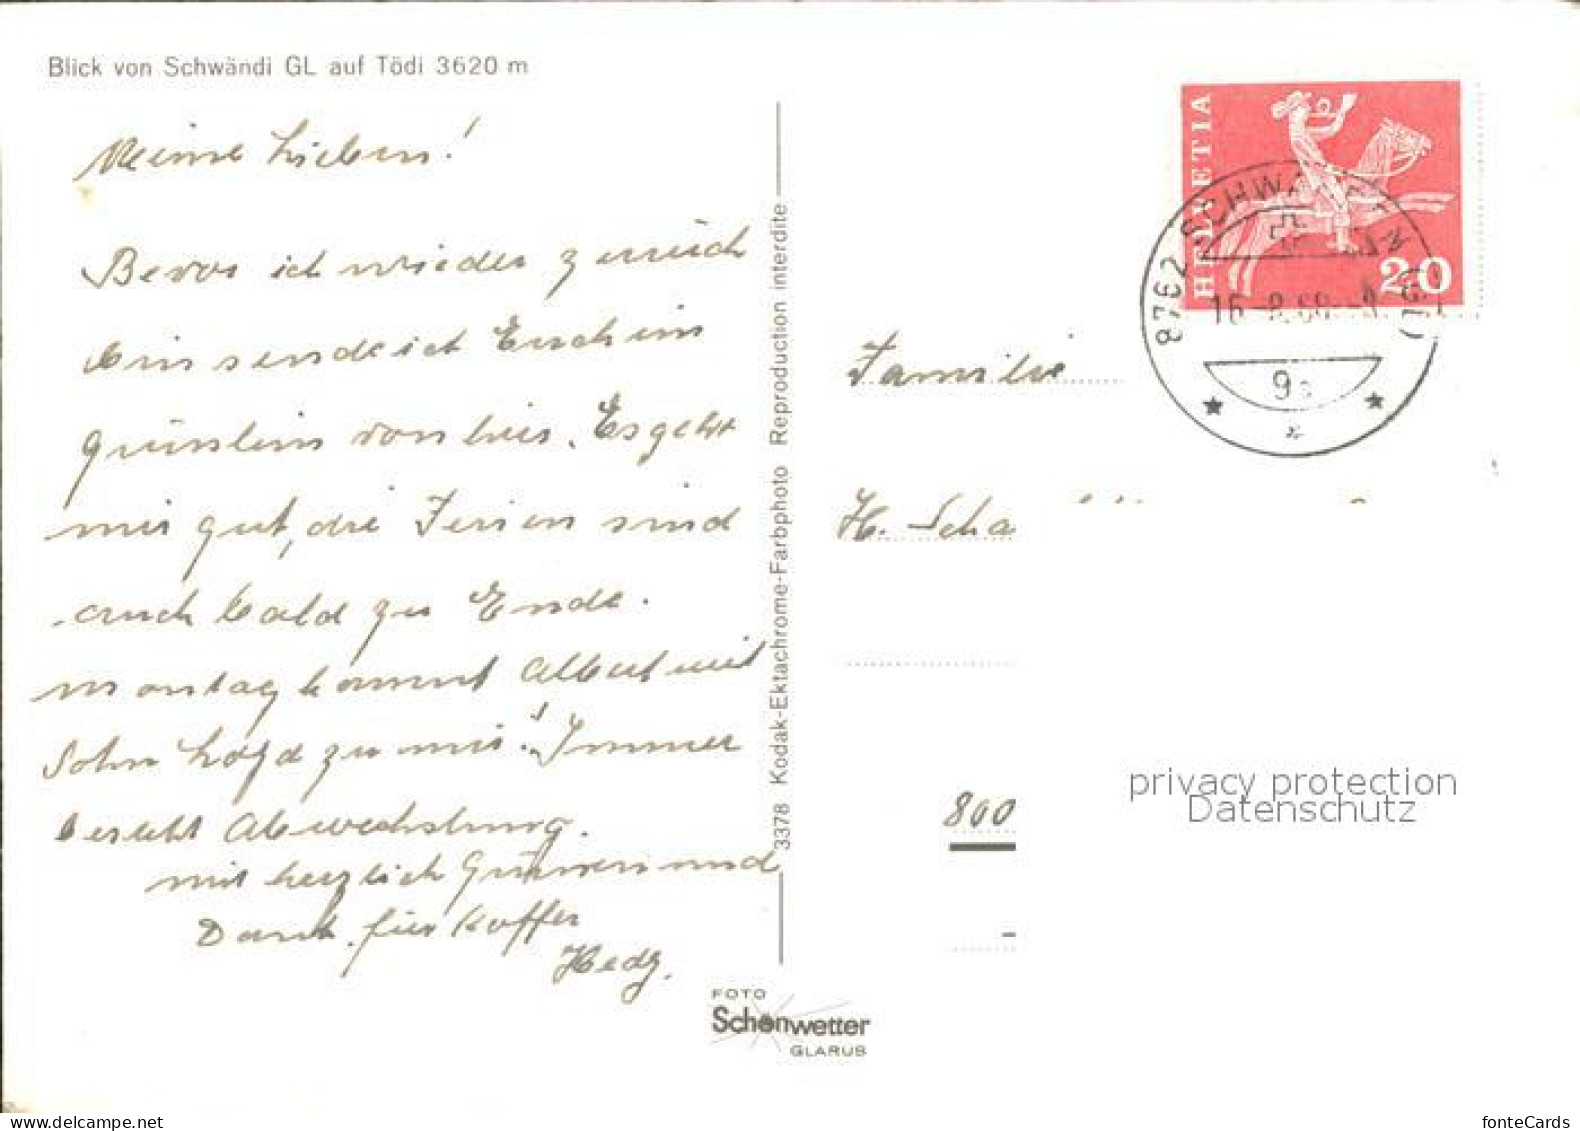 Blick von Schwändi GL auf Tödi 3620 m
Meine Lieben!
Bevor ich wieder zurück
bin sende ich Euch ein
Grüsslein von hier. Es geht
mir gut, die Ferien sind
auch bald zu Ende.
Montag kommt Albert mit
Sohn zu mir! Immer
Abwechslung.
mit herzlich Grüssen und
Dank für Koffer
Hedy.
3378 Kodak-Ektachrome-Farbphoto Reproduction interdite
FOTO
Schönwetter
GLARUS
HELVETIA
20
8762 SCHWANDEN (GL)
9a
Familie
H. Scha
800
privacy protection
Datenschutz
www.delcampe.net
fonteCards